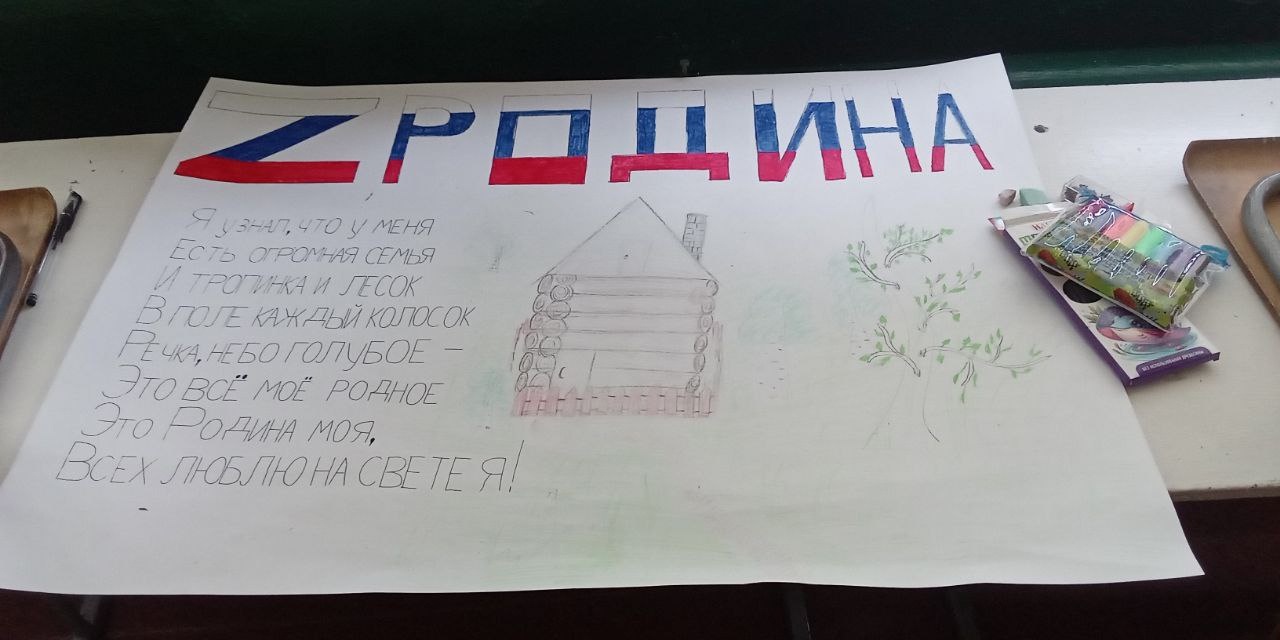 ZРОДИНА
Я узнал, что у меня
Есть огромная семья
И тропинка и лесок
В поле каждый колосок
Речка, небо голубое –
Это всё моё родное
Это Родина моя,
Всех люблю на свете я!